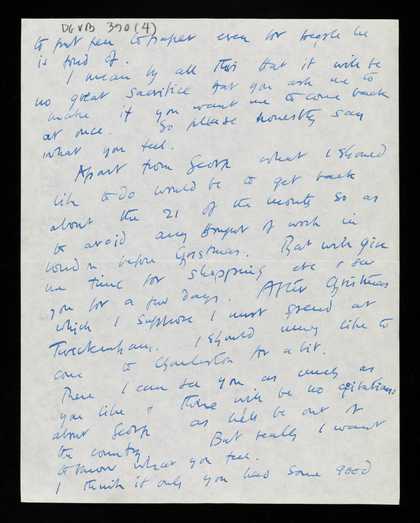 DGVB 390 (4)
to put pen to paper even for people he
is fond of.
I mean by all this that it will be
no great sacrifice that you ask me to
make if you want me to come back
at once. So please honestly say
what you feel.
Apart from George what I should
like to do would be to get back
about the 21 of the month so as
to avoid any thought of work in
London before Christmas. That will give
me time for shopping etc & see
you for a few days. After Christmas
which I suppose I must spend at
Twickenham. I should very like to
come to Charleston for a bit.
There I can see you as much as
you like & there will be no agitations
about George as he'll be out of
the country. But really I want
to know what you feel.
I think it only you had some good